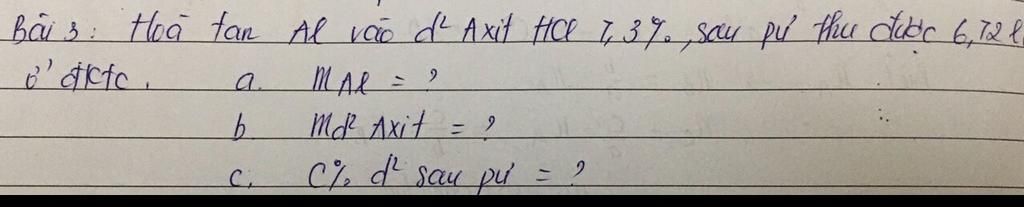 Bài 3: Hoà tan Al vào d² Axit HCl 7,3%, sau pứ thu được 6,72 l
ở đktc. a. mAl = ?
b. md² Axit = ?
c. C% d² sau pứ = ?